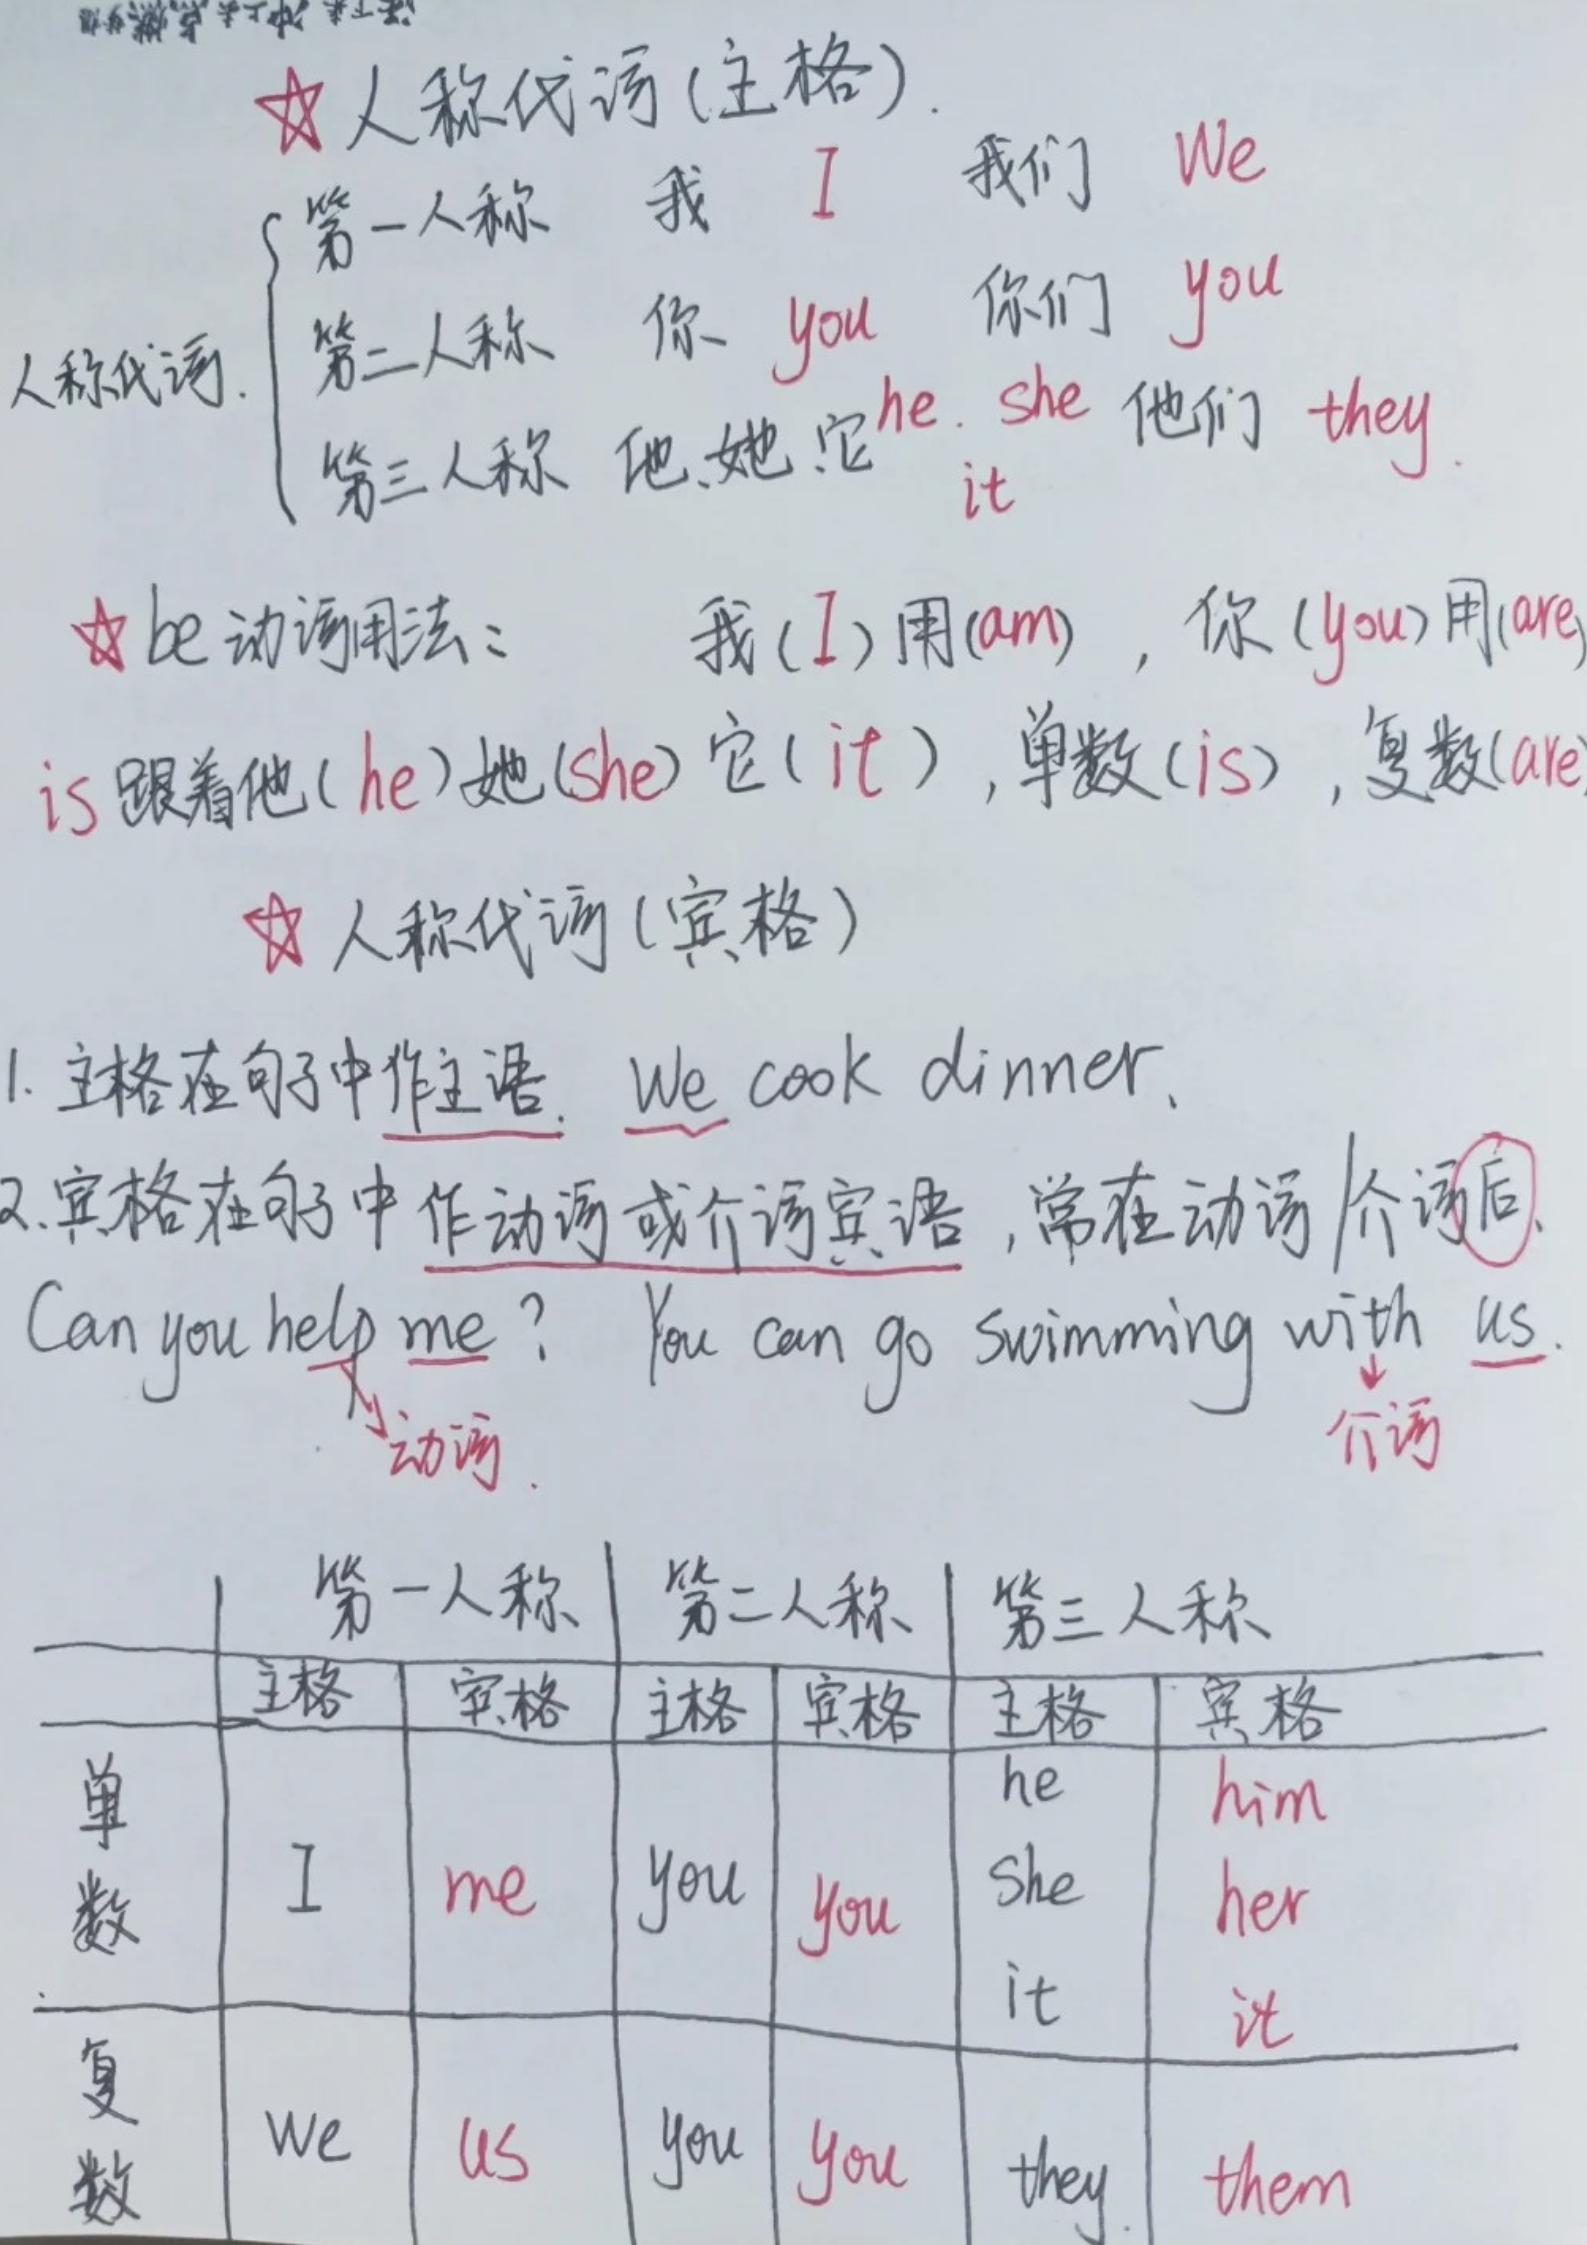 ☆人称代词(主格).
人称代词.
第一人称 我 I 我们 We
第二人称 你 you 你们 you
第三人称 他、她、它 he. she it 他们 they.
☆be动词用法: 我(I)用(am), 你(you)用(are)
is跟着他(he)她(she)它(it),单数(is),复数(are)
☆人称代词(宾格)
1.主格在句子中作主语. We cook dinner.
2.宾格在句子中作动词或介词宾语,常在动词/介词后.
Can you help me? You can go swimming with us.
动词. 介词
第一人称 第二人称 第三人称
主格 宾格 主格 宾格 主格 宾格
单数 I me you you he him
she her
it it
复数 We us you you they. them